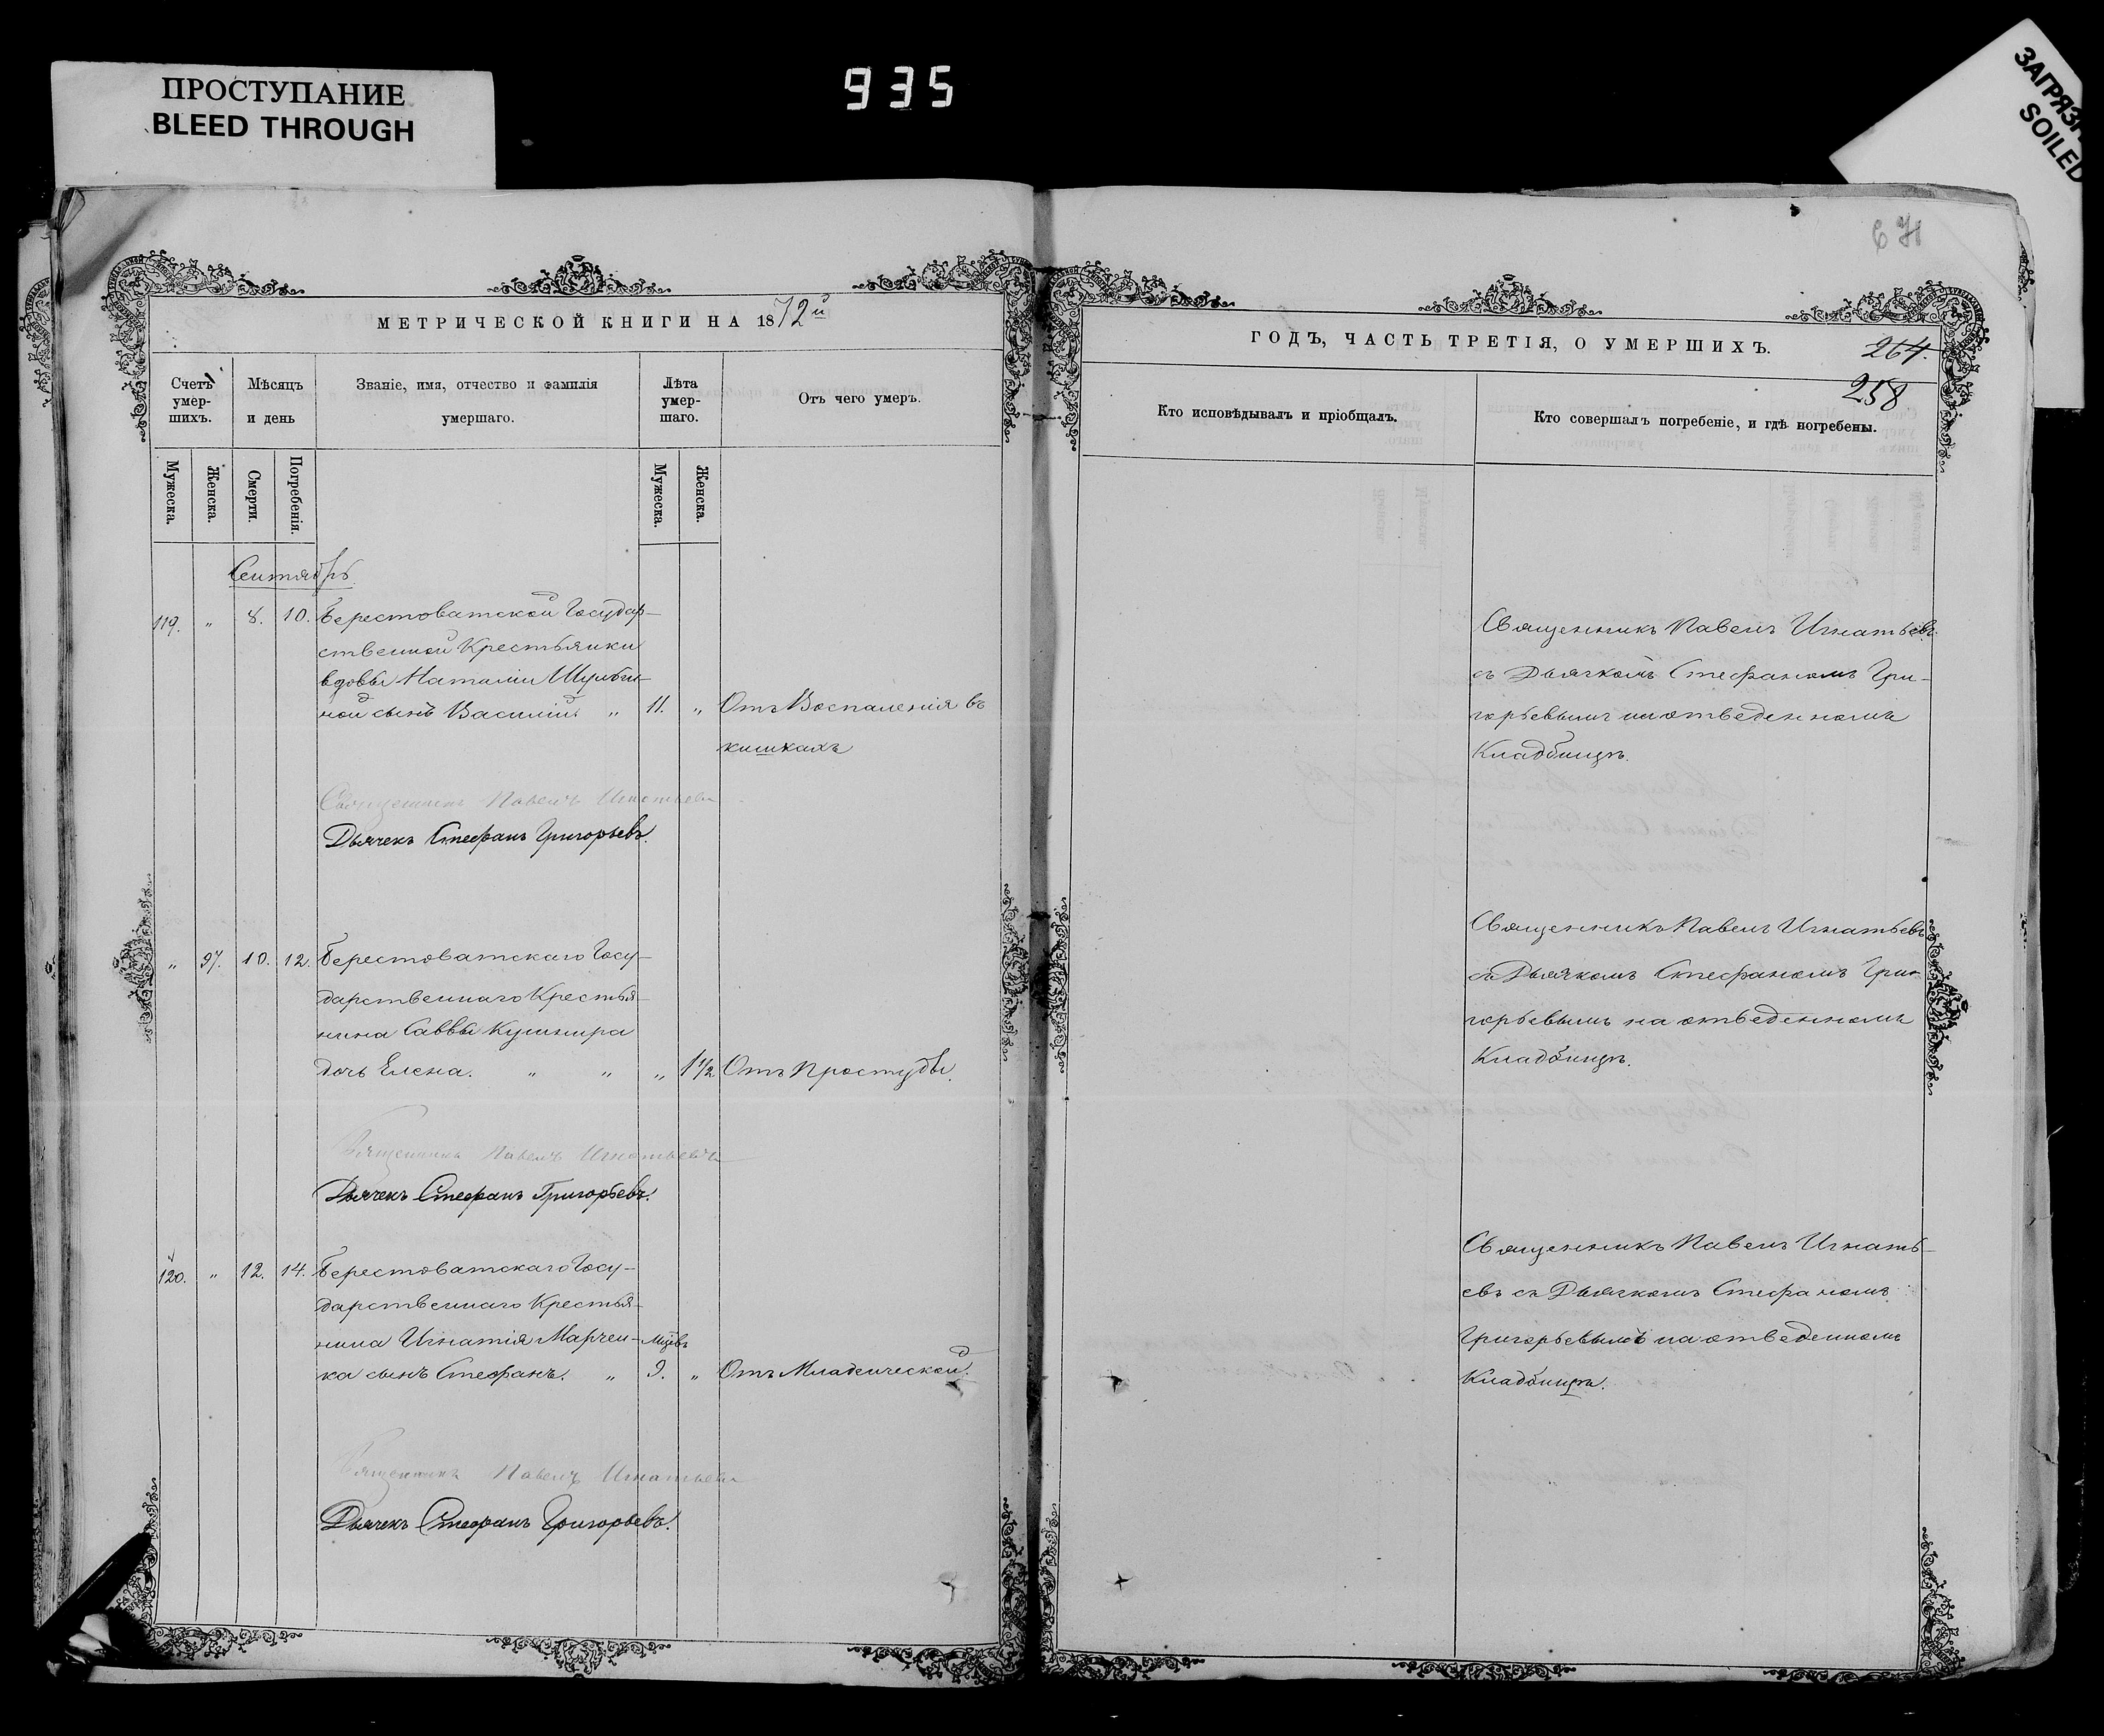 ПРОСТУПАНИЕ
BLEED THROUGH
935
SOILED
МЕТРИЧЕСКОЙ КНИГИ НА 1872й
Счетъ умер-шихъ.
Мѣсяцъ и день
Званіе, имя, отчество и фамилія умершаго.
Лѣта умер-шаго.
Отъ чего умеръ.
Мужеска.
Женска.
Смерти.
Погребенія.
Мужеска.
Женска.
Сентябрь.
119. " 8. 10. Берестоватской Государ-
ственной Крестьянки
вдовы Наталіи
ной сынъ Василій. " 11. " Отъ Воспаленія въ
кишкахъ
Священникъ Павелъ Игнатьевъ
Дьячекъ Стефанъ Григорьевъ.
" 97. 10. 12. Берестоватскаго Госу-
дарственнаго Крестья-
нина Саввы Кушнира
дочь Елена. " " " 1 1/2 Отъ Простуды.
Священникъ Павелъ Игнатьевъ
Дьячекъ Стефанъ Григорьевъ.
120. " 12. 14. Берестоватскаго Госу-
дарственнаго Крестья-
нина Игнатія Марчен-
ка сынъ Стефанъ. " 9. " Отъ Младенческой.
Священникъ Павелъ Игнатьевъ
Дьячекъ Стефанъ Григорьевъ.
ГОДЪ, ЧАСТЬ ТРЕТІЯ, О УМЕРШИХЪ.
264.
258
Кто исповѣдывалъ и пріобщалъ.
Кто совершалъ погребеніе, и гдѣ погребены.
Священникъ Павелъ Игнатьевъ
съ Дьячкомъ Стефаномъ Гри-
горьевымъ на отведенномъ
Кладбищѣ.
Священникъ Павелъ Игнатьевъ
съ Дьячкомъ Стефаномъ Гри-
горьевымъ на отведенномъ
Кладбищѣ.
Священникъ Павелъ Игнать-
евъ съ Дьячкомъ Стефаномъ
Григорьевымъ на отведенномъ
Кладбищѣ.